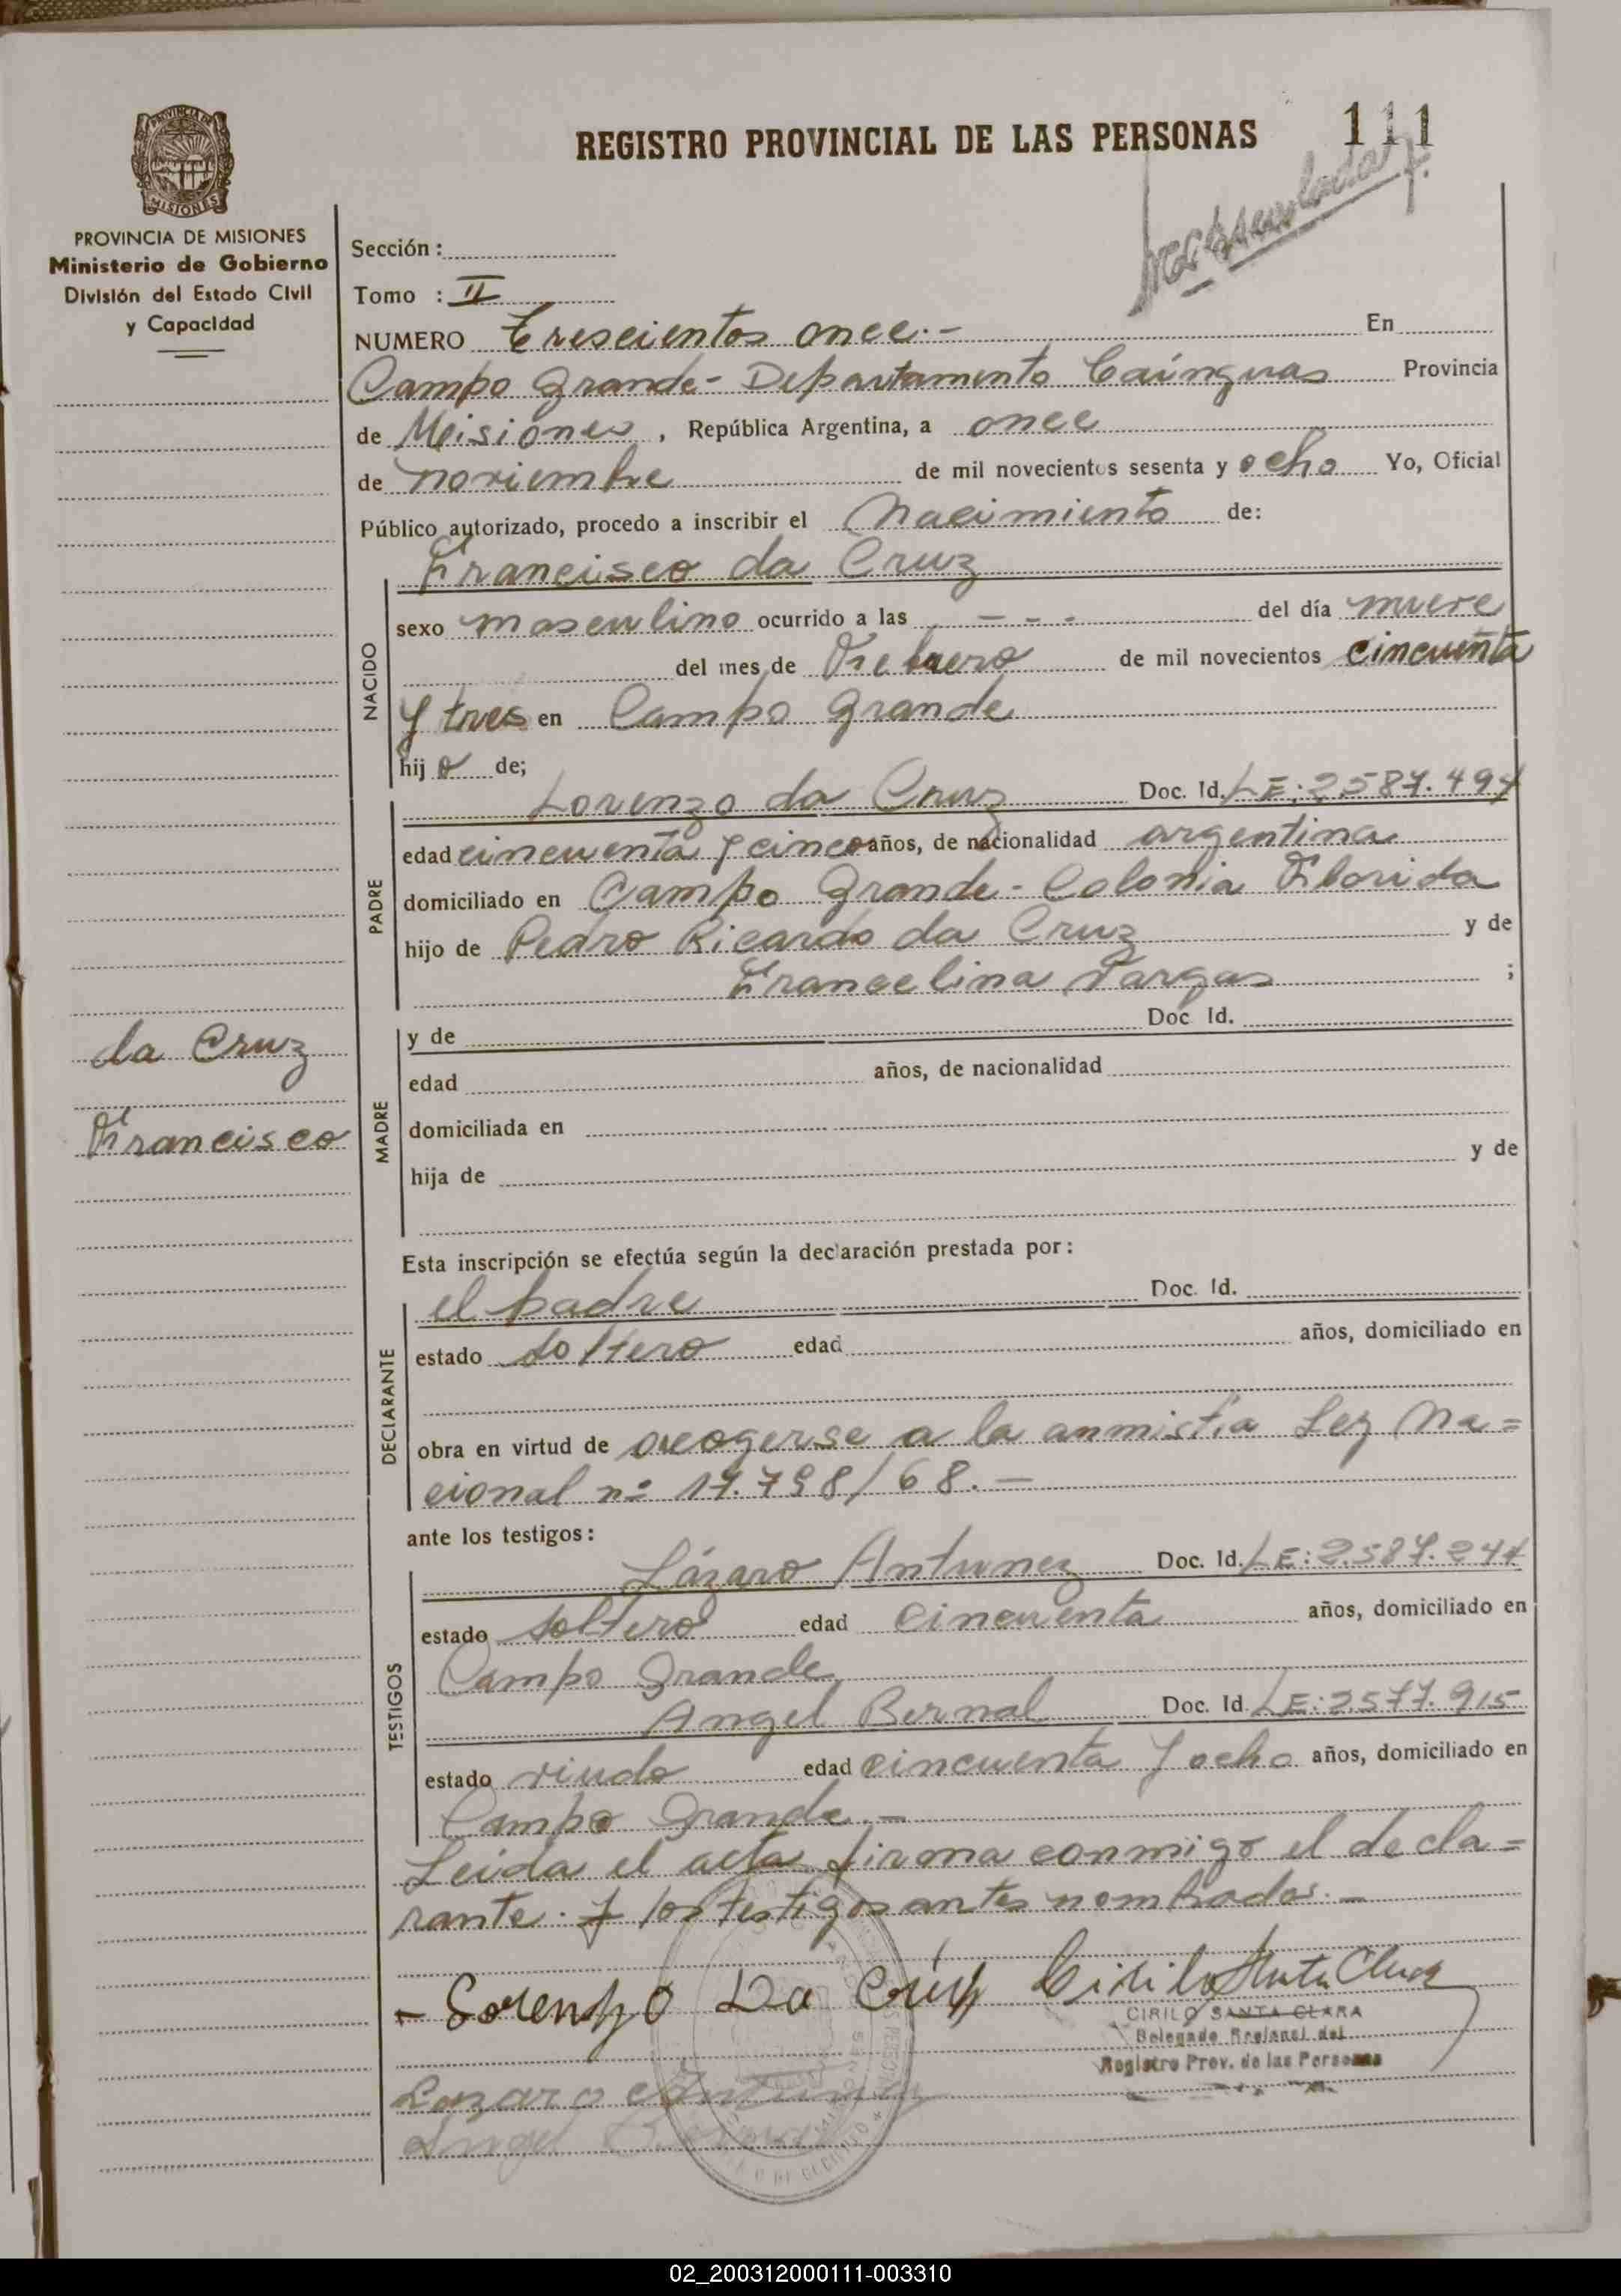 111
REGISTRO PROVINCIAL DE LAS PERSONAS
PROVINCIA DE MISIONES
Ministerio de Gobierno
División del Estado Civil
y Capacidad
Sección :
Tomo : II
NUMERO Trescientos once.- En
Campo Grande - Departamento Cainguas Provincia
de Misiones, República Argentina, a once
de noviembre de mil novecientos sesenta y ocho Yo, Oficial
Público autorizado, procedo a inscribir el Nacimiento de:
NACIDO
Francisco da Cruz
sexo masculino ocurrido a las - - - del día nueve
del mes de Febrero de mil novecientos cincuenta
y tres en Campo Grande
hijo de;
PADRE
Lorenzo da Cruz Doc. Id. LE: 2587.497
edad cincuenta y cinco años, de nacionalidad argentina
domiciliado en Campo Grande - Colonia Florida
hijo de Pedro Ricardo da Cruz y de
Francelina Vargas ;
MADRE
y de Doc Id.
edad años, de nacionalidad
domiciliada en
hija de y de
da Cruz
Francisco
Esta inscripción se efectúa según la declaración prestada por:
DECLARANTE
el padre Doc. Id.
estado soltero edad años, domiciliado en
obra en virtud de acogerse a la anmistia Ley Na=
cional nº 17.798/68.-
ante los testigos:
TESTIGOS
Lázaro Antunez Doc. Id. LE: 2.587.244
estado soltero edad cincuenta años, domiciliado en
Campo Grande
Angel Bernal Doc. Id. LE: 2.577.915
estado viudo edad cincuenta y ocho años, domiciliado en
Campo Grande.-
Leida el acta firma conmigo el decla=
rante. y los testigos antes nombrados.-
- Lorenzo Da Cruz Cirilo Santa Clara
CIRILO SANTA CLARA
Delegado Regional del
Registro Prov. de las Personas
Lazaro Antunez
Angel Bernal
02_200312000111-003310